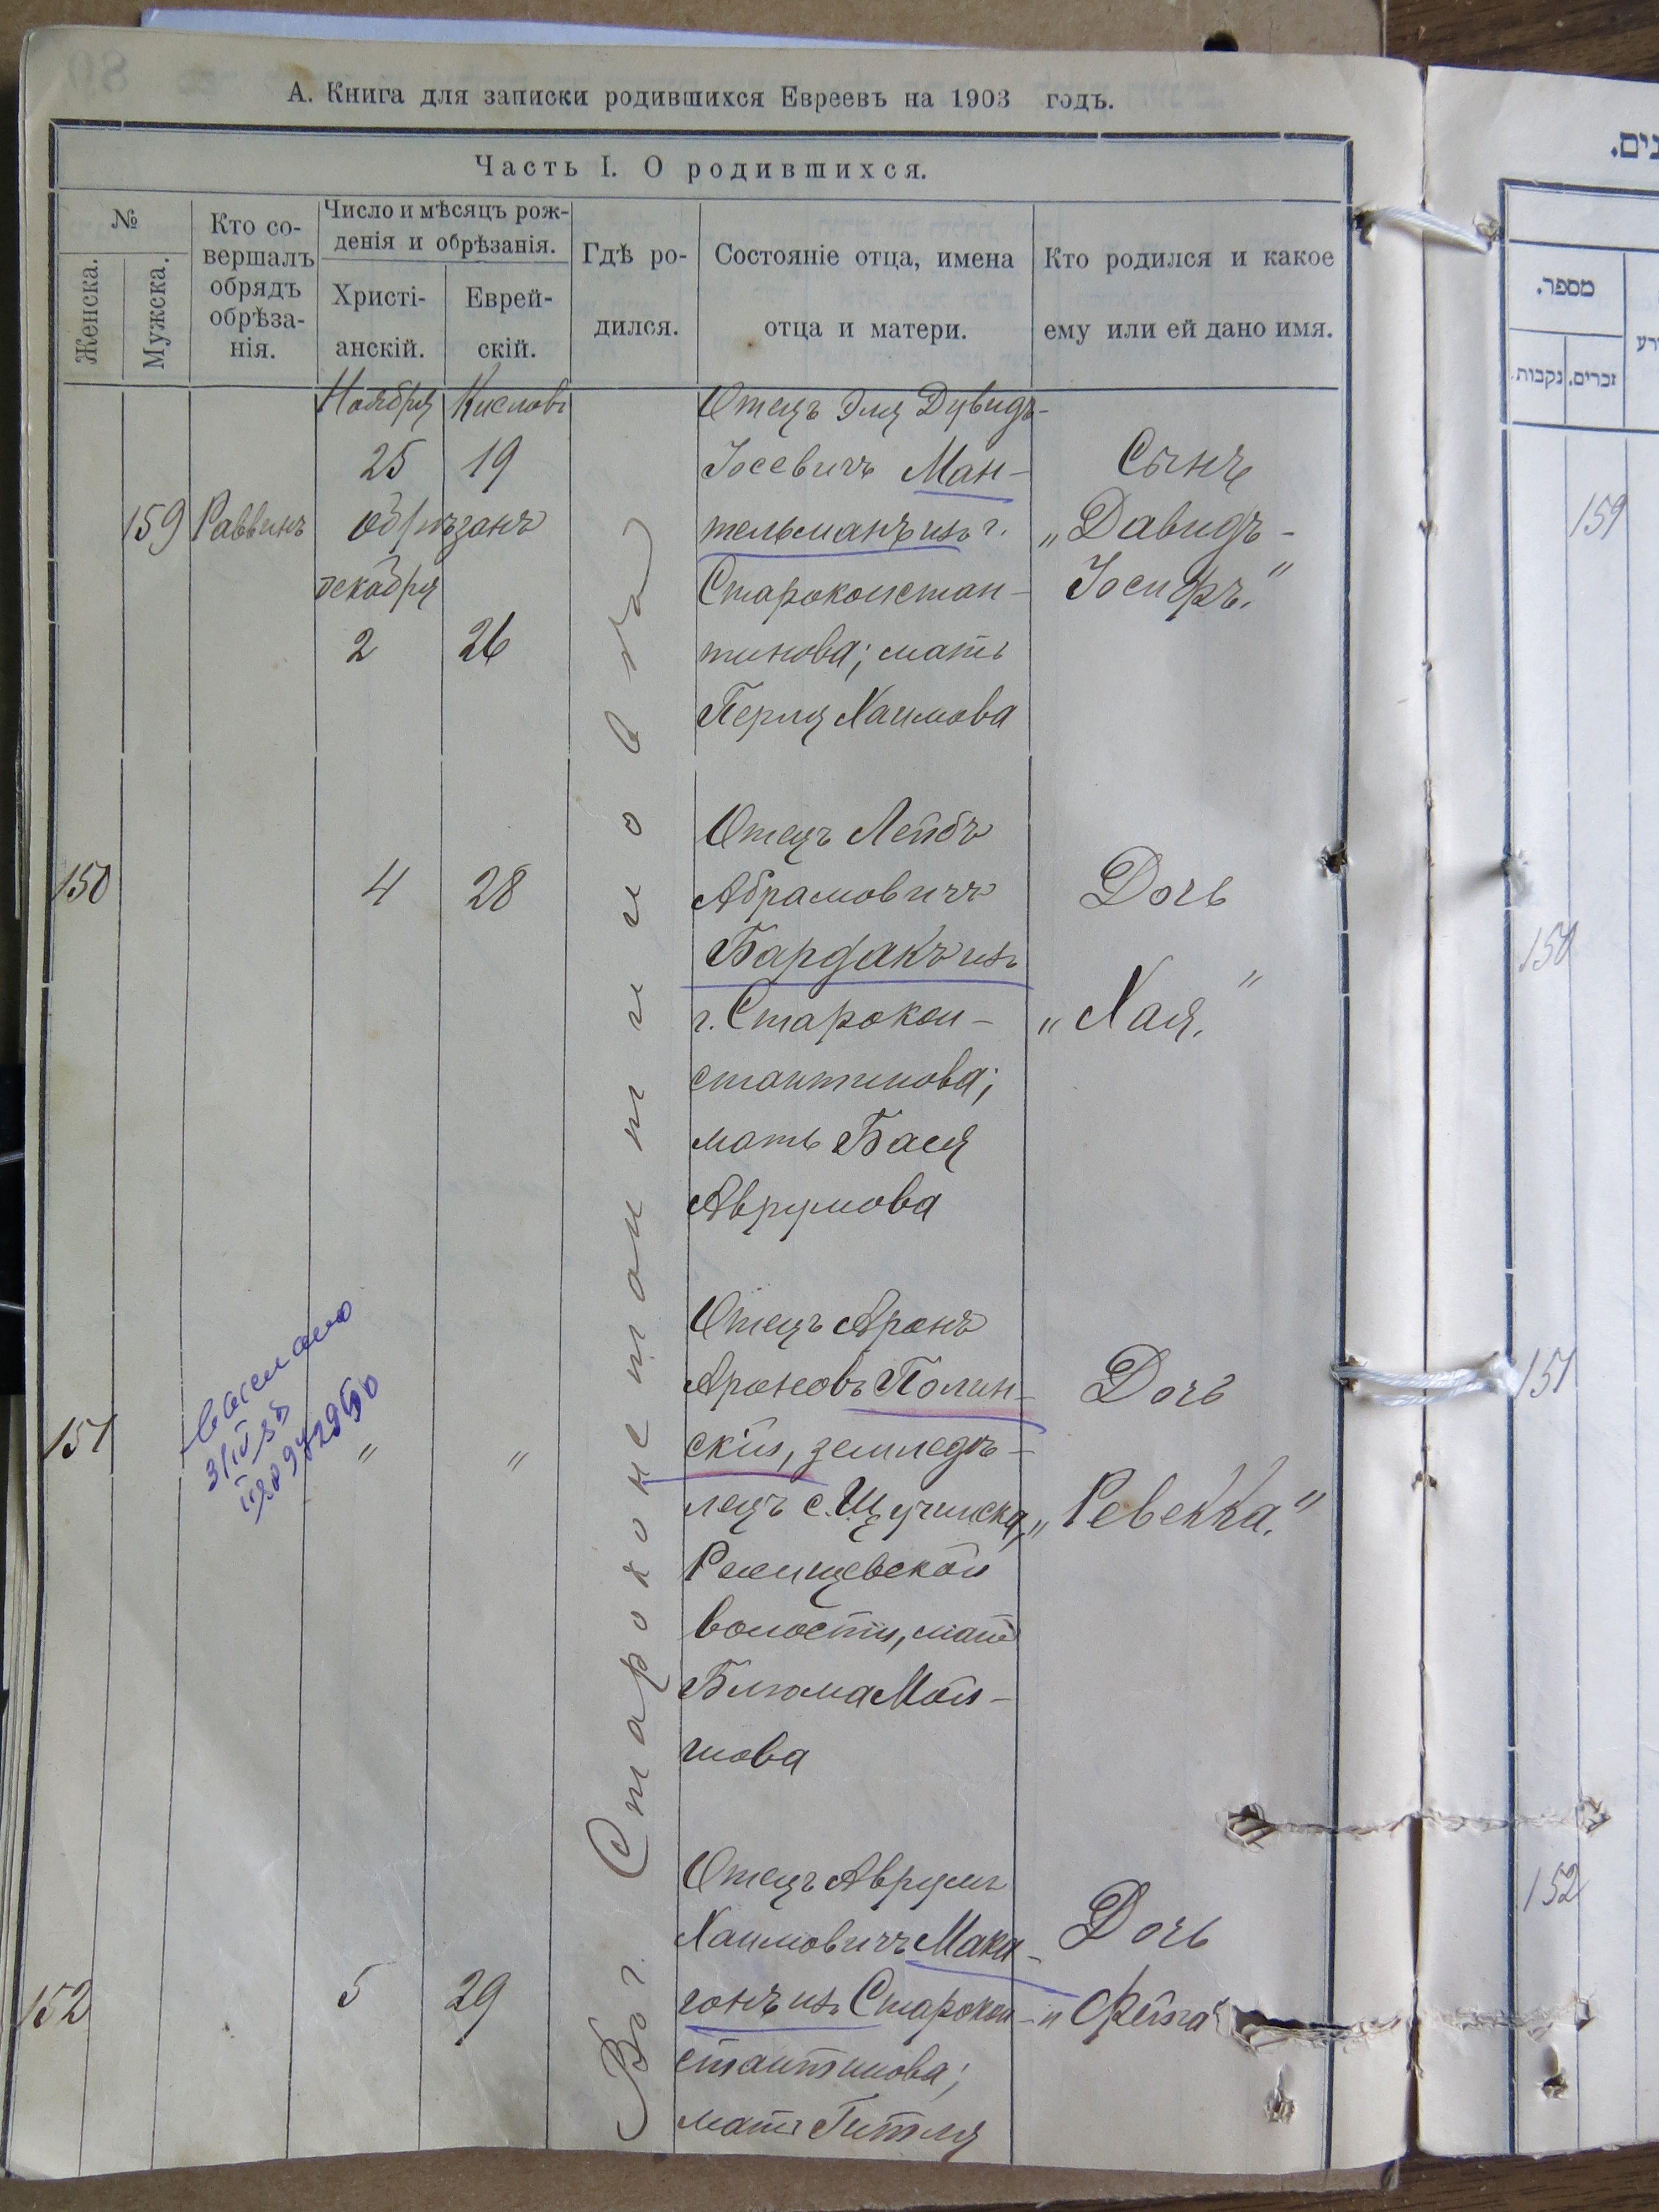 А. Книга для записки родившихся Евреевъ на 1903 годъ.
Часть I. О родившихся.
№
Женска.
Мужска.
Кто со-
вершалъ
обрядъ
обрѣза-
нія.
Число и мѣсяцъ рож-
денія и обрѣзанія.
Христі-
анскій.
Еврей-
скій.
Гдѣ ро-
дился.
Состояніе отца, имена
отца и матери.
Кто родился и какое
ему или ей дано имя.
Въ г. Староконстантиновѣ
159
Раввинъ
Ноября
25
19
обрѣзанъ
декабря
2
26
Отецъ Эля Дувидъ-
Іосевичъ Ман-
тельманъ изъ г.
Староконстан-
тинова; мать
Перля Хаимова
Сынъ
„Давидъ-
Іосифъ."
150
4
28
Отецъ Лейбъ
Абрамовичъ
Бардакъ изъ
г. Старокон-
стантинова;
мать Бася
Аврумова
Дочь
„Хая."
151
"
"
3/IV
Отецъ Аронъ
Ароновъ Полин-
скій, земледѣ-
лецъ с. Щучинска,
волости, мать
Блюма Мой-
шова
Дочь
„Ревекка."
152
5
29
Отецъ Аврумъ
Хаимовичъ Мака-
гонъ изъ Старокон-
стантинова;
мать Гитля
Дочь
„Фейга"
נים.
מספר.
זכרים.
נקבות.
159
150
151
152